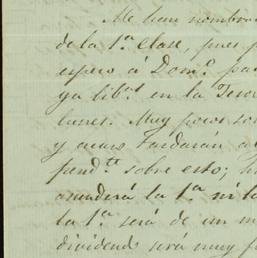 Me han nombra
de la 1.ª clase, pues p
espero á Dom.º pa
ya lib.ˢ en la Teso
lunes. Muy pocos so
y acaso tardarán a
pend.ᵗᵉ sobre esto;
la 1.ª ni l
la 1.ª será de un m
dividendo será muy